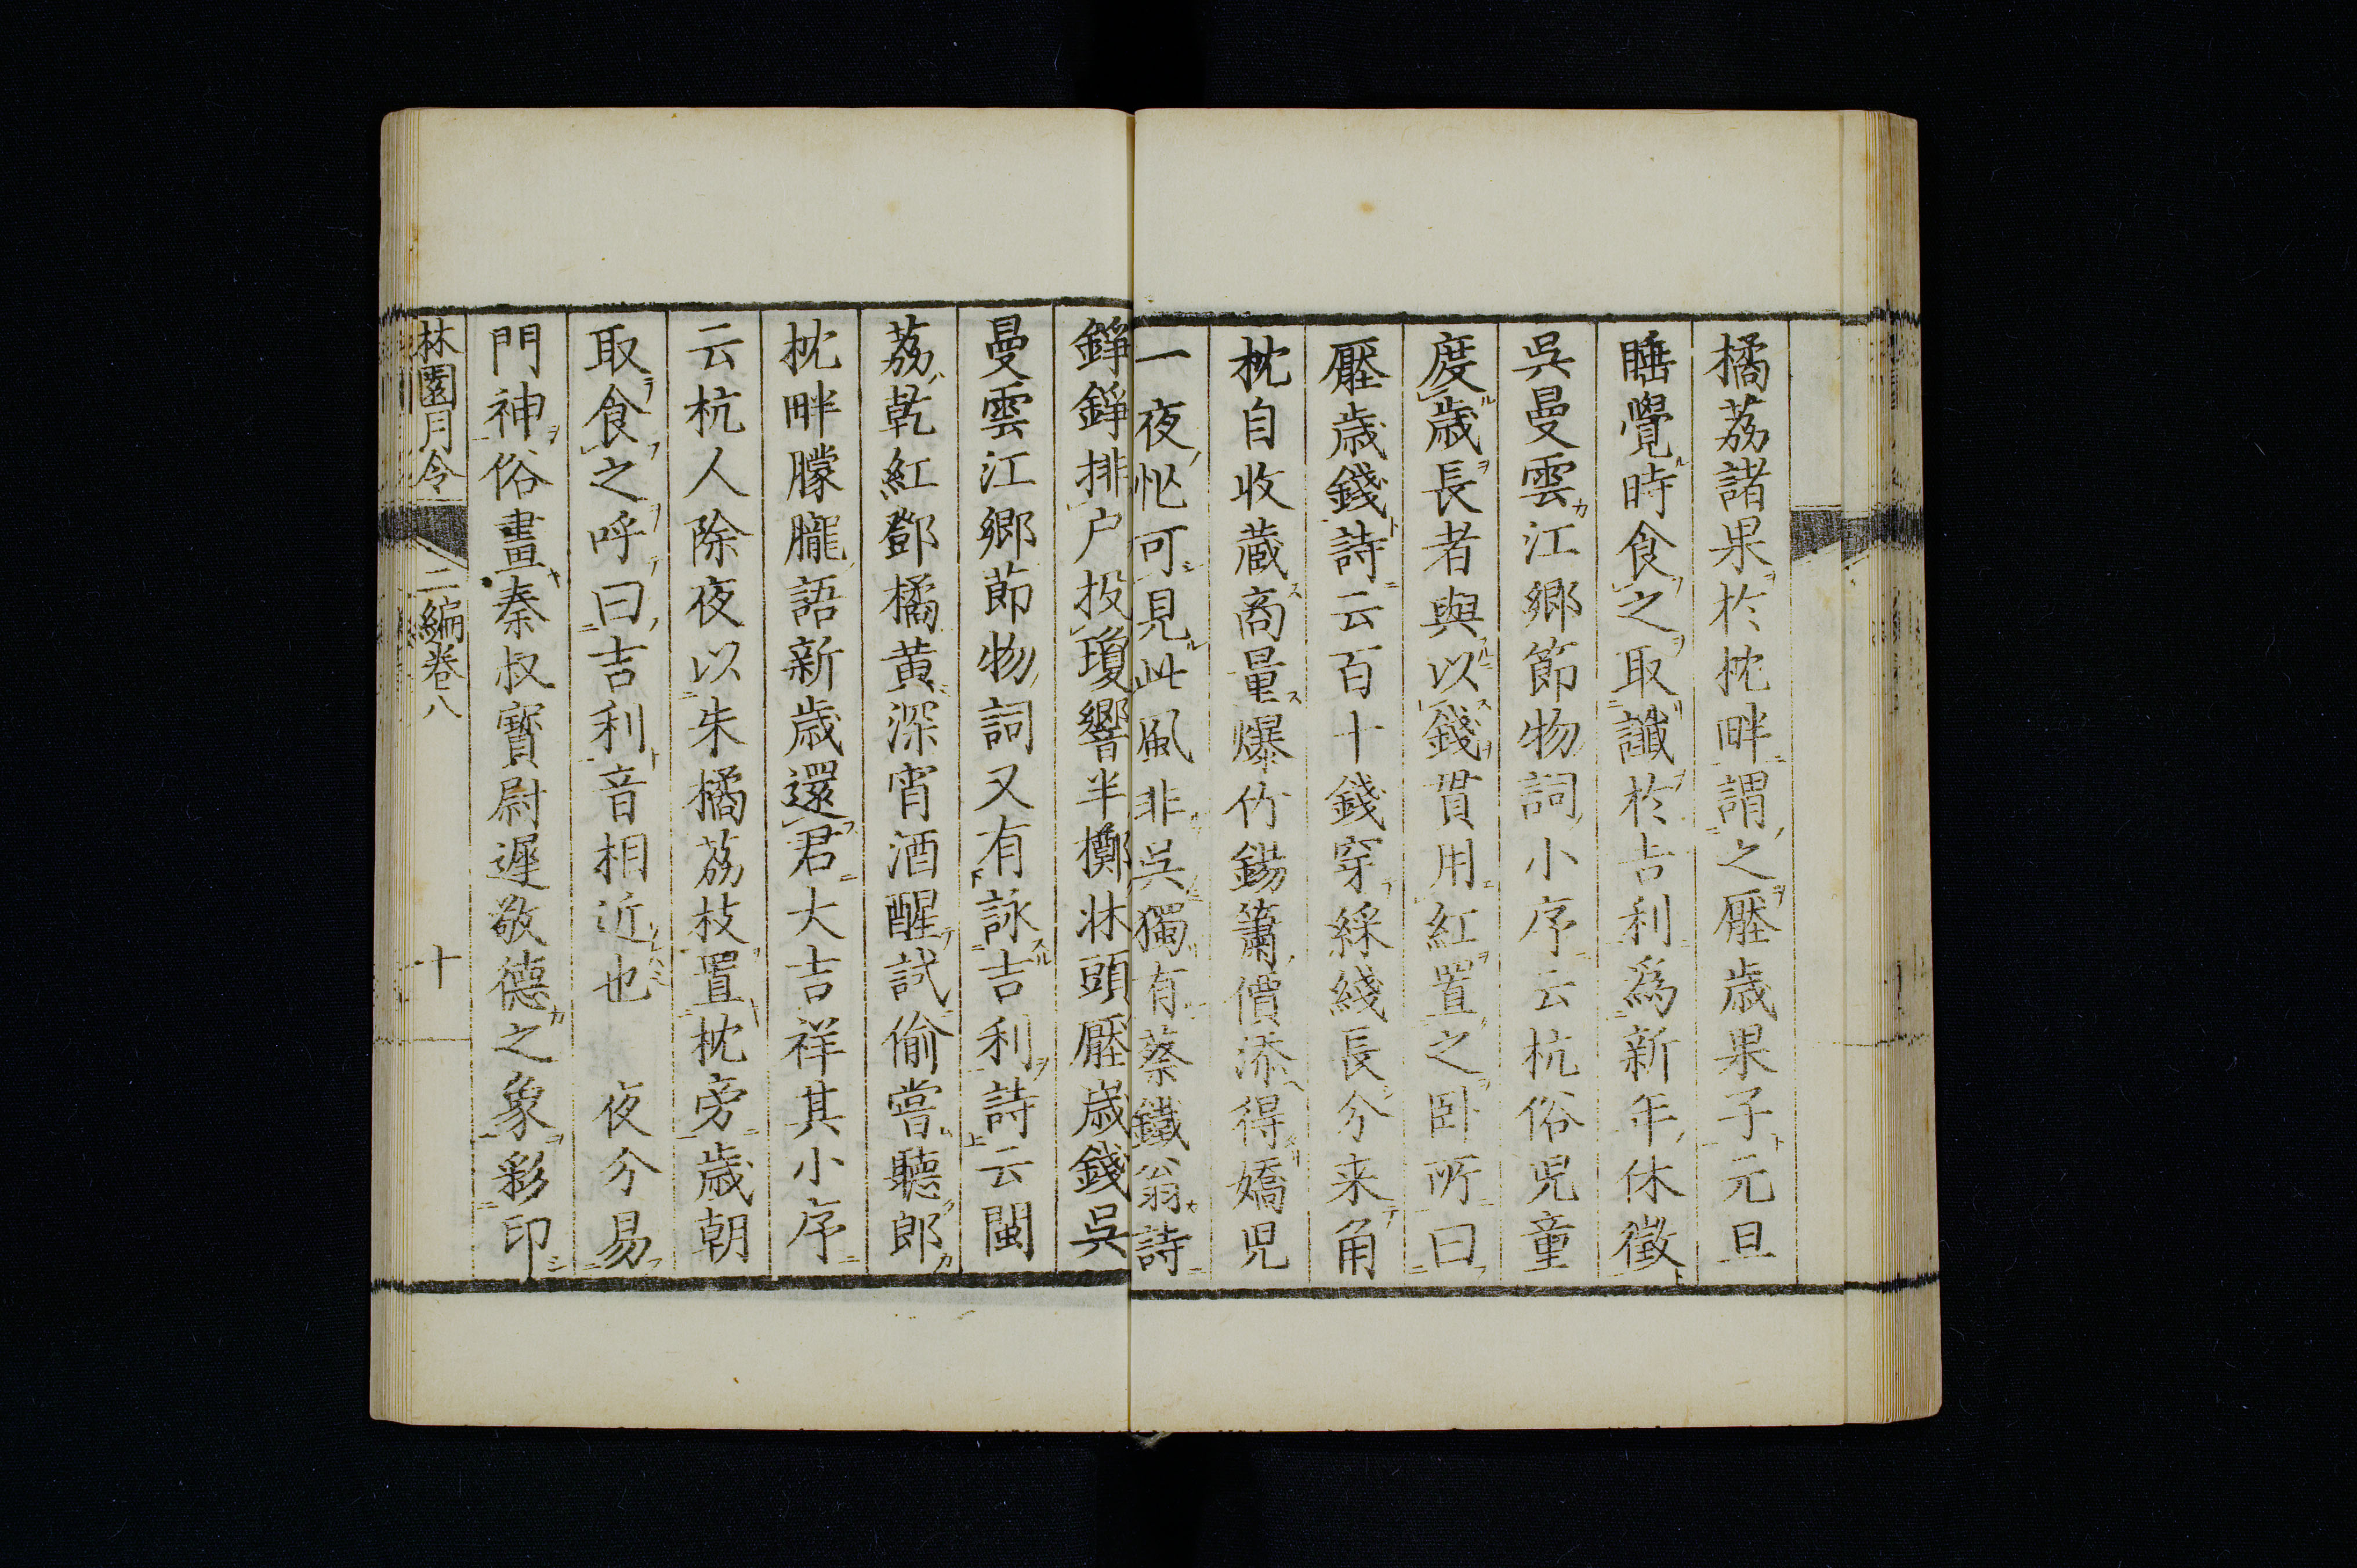 橘荔諸果於枕畔謂之壓歳果子元旦
睡覺時食之取讖於吉利爲新年休徵
吳曼雲江鄉節物詞小序云杭俗兒童
度歳長者與以錢貫用紅置之卧所曰
壓歳錢詩云百十錢穿綵綫長分来角
枕自收藏商量爆竹錫簫價添得嬌兒
一夜忙可見此風非吳獨有蔡鐵翁詩
錚錚排户投瓊響半擲牀頭壓歳錢吳
曼雲江鄉節物詞又有詠吉利詩云閩
荔乾紅鄧橘黄深宵酒醒試偷嘗聽郎
枕畔朦朧語新歳還君大吉祥其小序
云杭人除夜以朱橘荔枝置枕旁歳朝
取食之呼曰吉利音相近也 夜分易
門神俗畫秦叔寶尉遲敬德之象彩印
林園月令 二編卷八 十